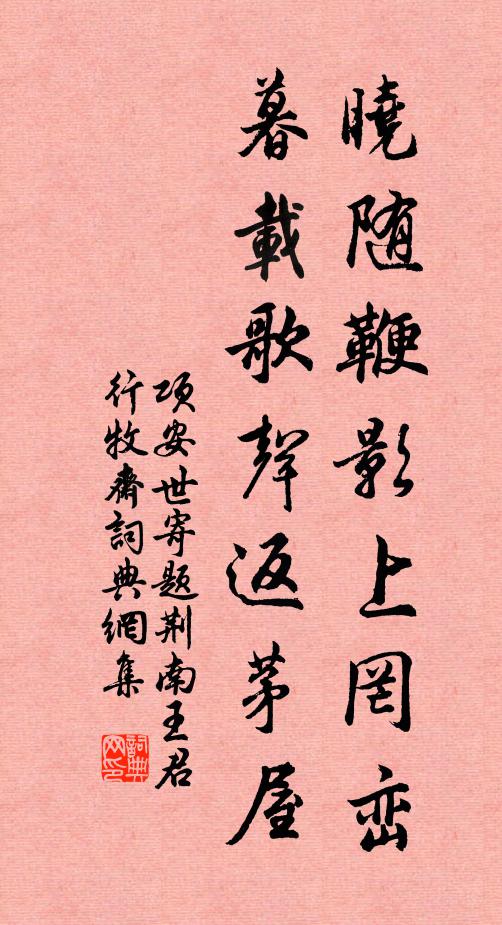 曉随鞭影上罔巒
暮載歌聲返茅屋
項安世寄題荆南王君
行牧齋詞典網集
詞典网印